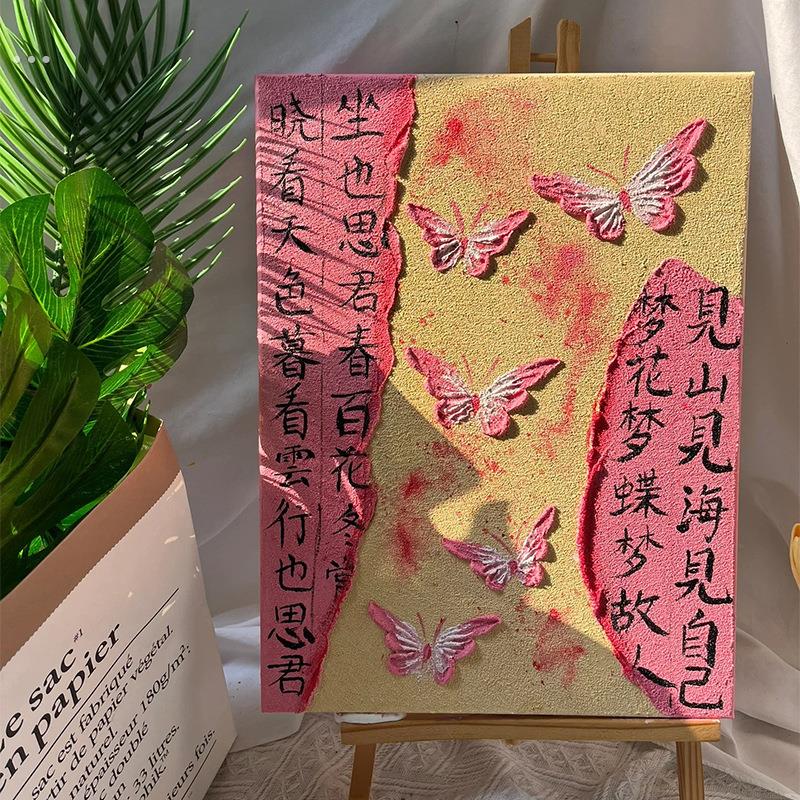 晓看天色暮看雲行也思君
坐也思君春百花冬
見山見海見自己
梦花梦蝶梦故人
sac #1
en papier
sac est fabriqué
de papier végétal.
naturel
épaisseur 180g/m²:
doublé
33 litres.
fois.